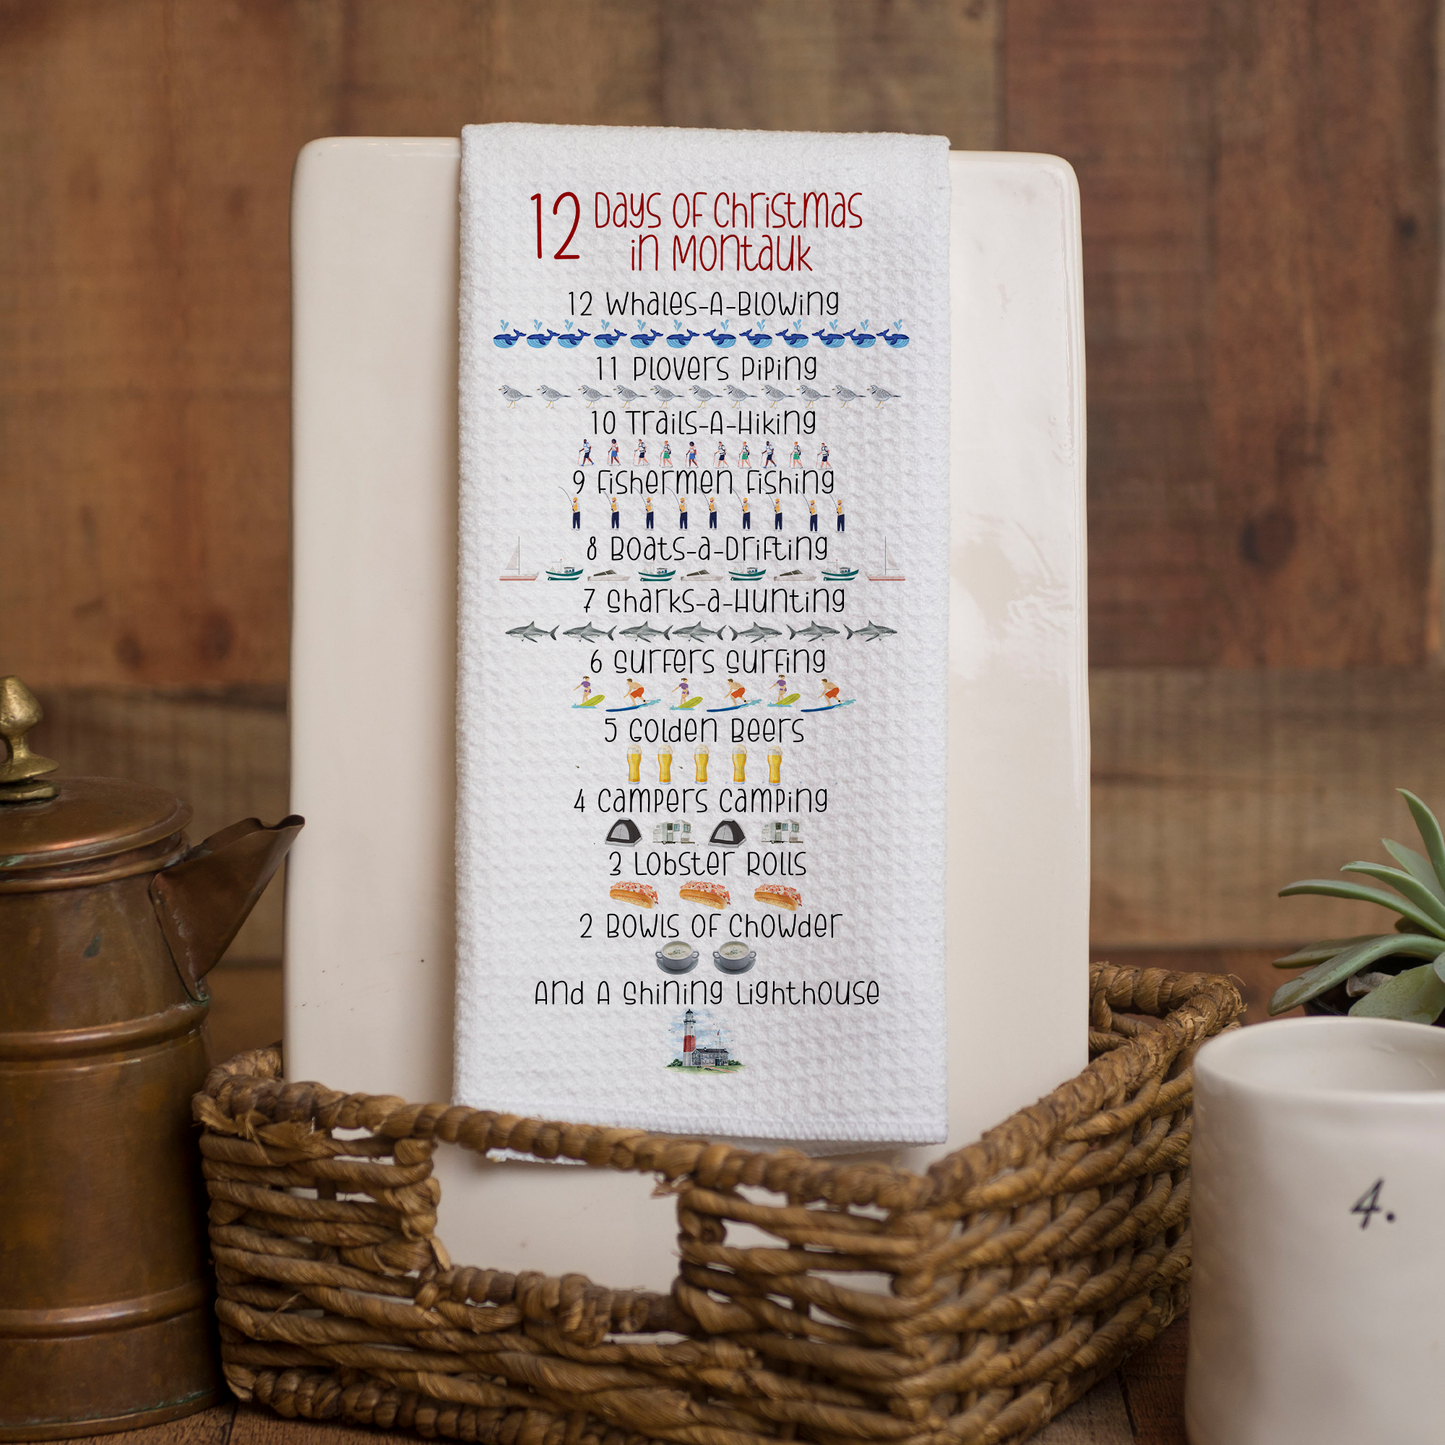 12 Days of Christmas
in Montauk
12 Whales-A-Blowing
11 Plovers Piping
10 Trails-A-Hiking
9 Fishermen Fishing
8 Boats-a-Drifting
7 Sharks-a-Hunting
6 Surfers Surfing
5 Golden Beers
4 Campers Camping
3 Lobster Rolls
2 Bowls of Chowder
And A Shining Lighthouse
4.